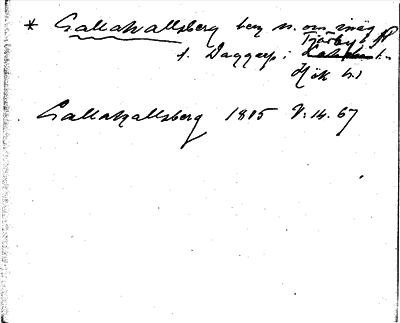 * Gallakallsberg berg n. om väg
Tjärby sn
f. Daggarp i
Hök hd
Gallakallsberg 1885 V:14.67